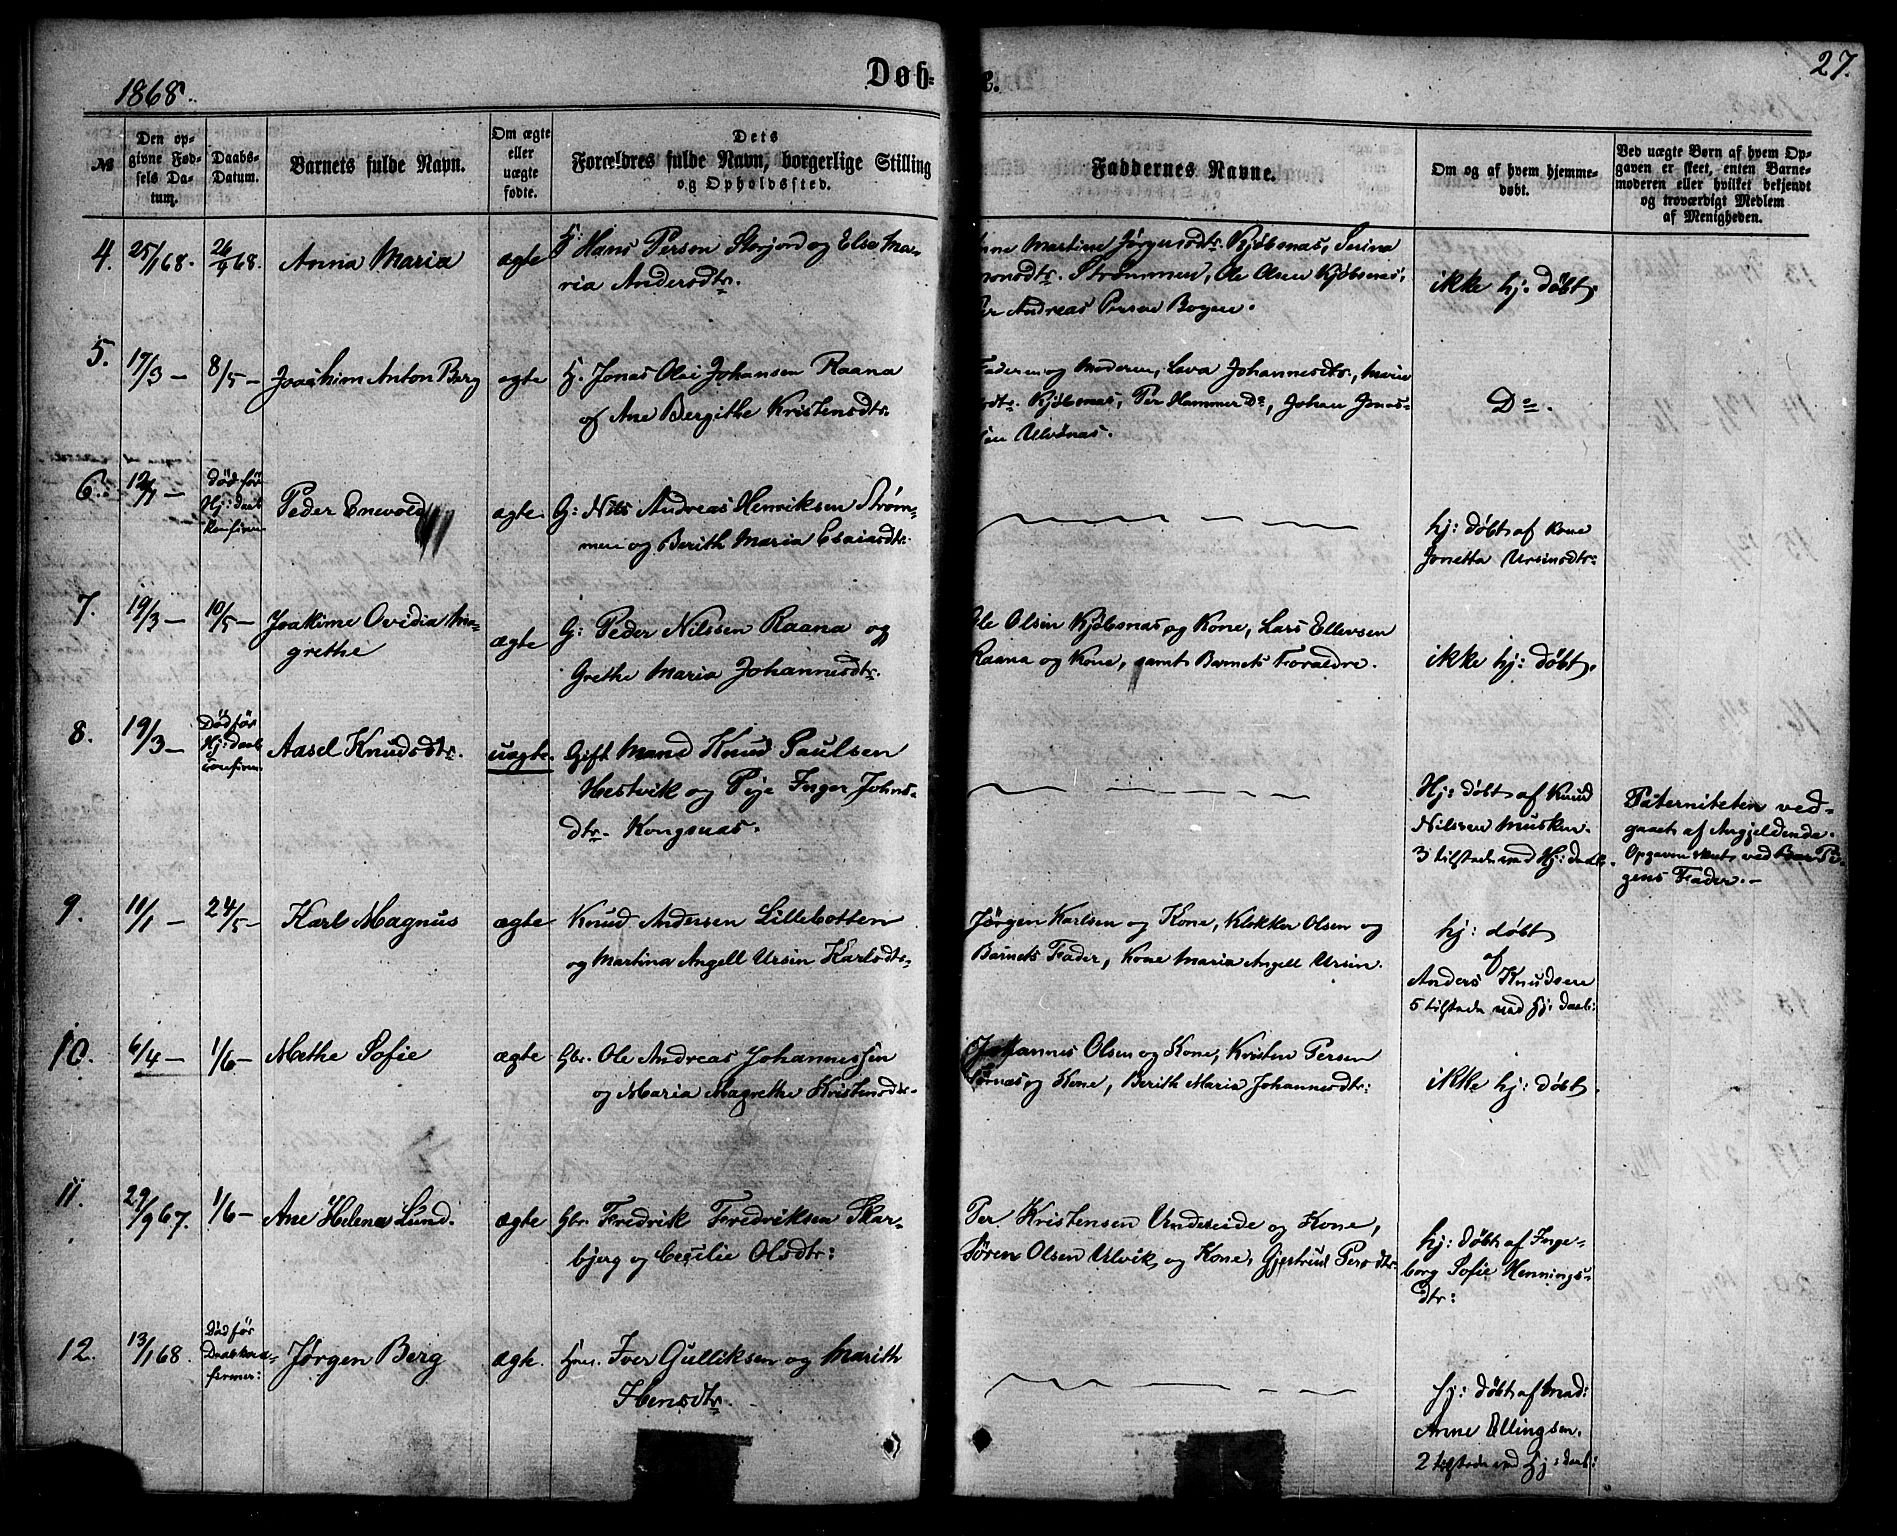 1868.
Døb-
e.
27.
№
Den opgivne Fødsels Datum.
Daabs-Datum.
Barnets fulde Navn.
Om ægte eller uægte fødte.
Dets Forældres fulde Navn, borgerlige Stilling og Opholdssted.
Faddernes Navne.
Om og af hvem hjemmedøbt.
Ved uægte Børn af hvem Opgaven er skeet, enten Barnemoderen eller hvilket bekjendt og troværdigt Medlem af Menigheden.
4. 25/1 68. 26/4 68. Anna Maria ægte Hans Person Storjord og Elsa Ma-
ria Andersdtr.
nne Martine Jørgensdtr. Kjöbsnas, Serina
monsdtr. Strømmen, Ole Olsen Kjöbsnas,
er Andreas Persen Bogen.
ikke hj: döbt.
5. 17/3 — 8/5 — Joachim Anton Berg ægte Jonas Olai Johansen Raana
og Ane Bergithe Kristensdtr.
Faderen og Moderen, Lava Johannesdtr., Marie
sdtr. Kjöbsnas, Per Hammer Do, Johan Jonas-
sen Ulvönas.
Do.
6. 12/1 — död før
Hj: daab
Konfirm
Peder Enevold ægte. G: Nils Andreas Henriksen Strøm-
men og Berith Maria Esaiasdtr.
hj: döbt af Kone
Jonetta Ursinsdtr:
7. 19/3 — 10/5 — Joakime Ovidia Ma-
grethe
ægte G: Peder Nilssen Raana og
Grethe Maria Johannesdtr.
Ole Olsen Kjöbsnas og Kone, Lars Ellevsen
Raana og Kone, samt Barnets Foraldre.
ikke hj: döbt.
8. 19/3 — Död før
Hj: daab
Confirm.
Aasel Knudsdtr. uægte. Gift Mand Knud Paulsen
Hestvik og Pige Inger Johns-
dtr. Kongsnas.
Hj: döbt af Knud
Nilssen Musken.
3 tilstede ved Hj: daab.
Paterniteten ved-
gaaet af Angjeldende.
Opgaven skeet ved Pi-
gens Fader.—
9. 11/1 — 24/5 — Karl Magnus ægte Knud Andersen Lillebotten
og Martina Angell Ursin Karlsdtr.
Jørgen Karlsen og Kone, Klokker Olsen og
Barnets Fader, Kone Maria Angell Ursin.
hj: døbt
af
Anders Knudsen
5 tilstede ved Hj: daab:
10. 6/4 — 1/6 — Mathe Sofie ægte Gbr. Ole Andreas Johannessen
og Maria Magrethe Kristensdtr.
Johannes Olsen og Kone, Kristen Persen
og Kone, Berith Maria Johannesdtr:
ikke hj: döbt.
11. 29/9 67. 1/6 — Ane Helena Lund. ægte Gbr. Fredrik Fredriksen Skar-
bjerg og Cecilie Olsdtr:
Per Kristensen Undereide og Kone,
Søren Olsen Ulvik og Kone, Gjertrud Persdtr.
hj: döbt af Inge-
borg Sofie Hennings-
dtr:
12. 13/1 68. Död før
Daabskon-
firmer:
Jørgen Berg ægte. Iver Gulliksen og Marith
Hensdtr.
hj: döbt af Mad:
Anne Ellingsen.
2 tilstede ved hj: daab: